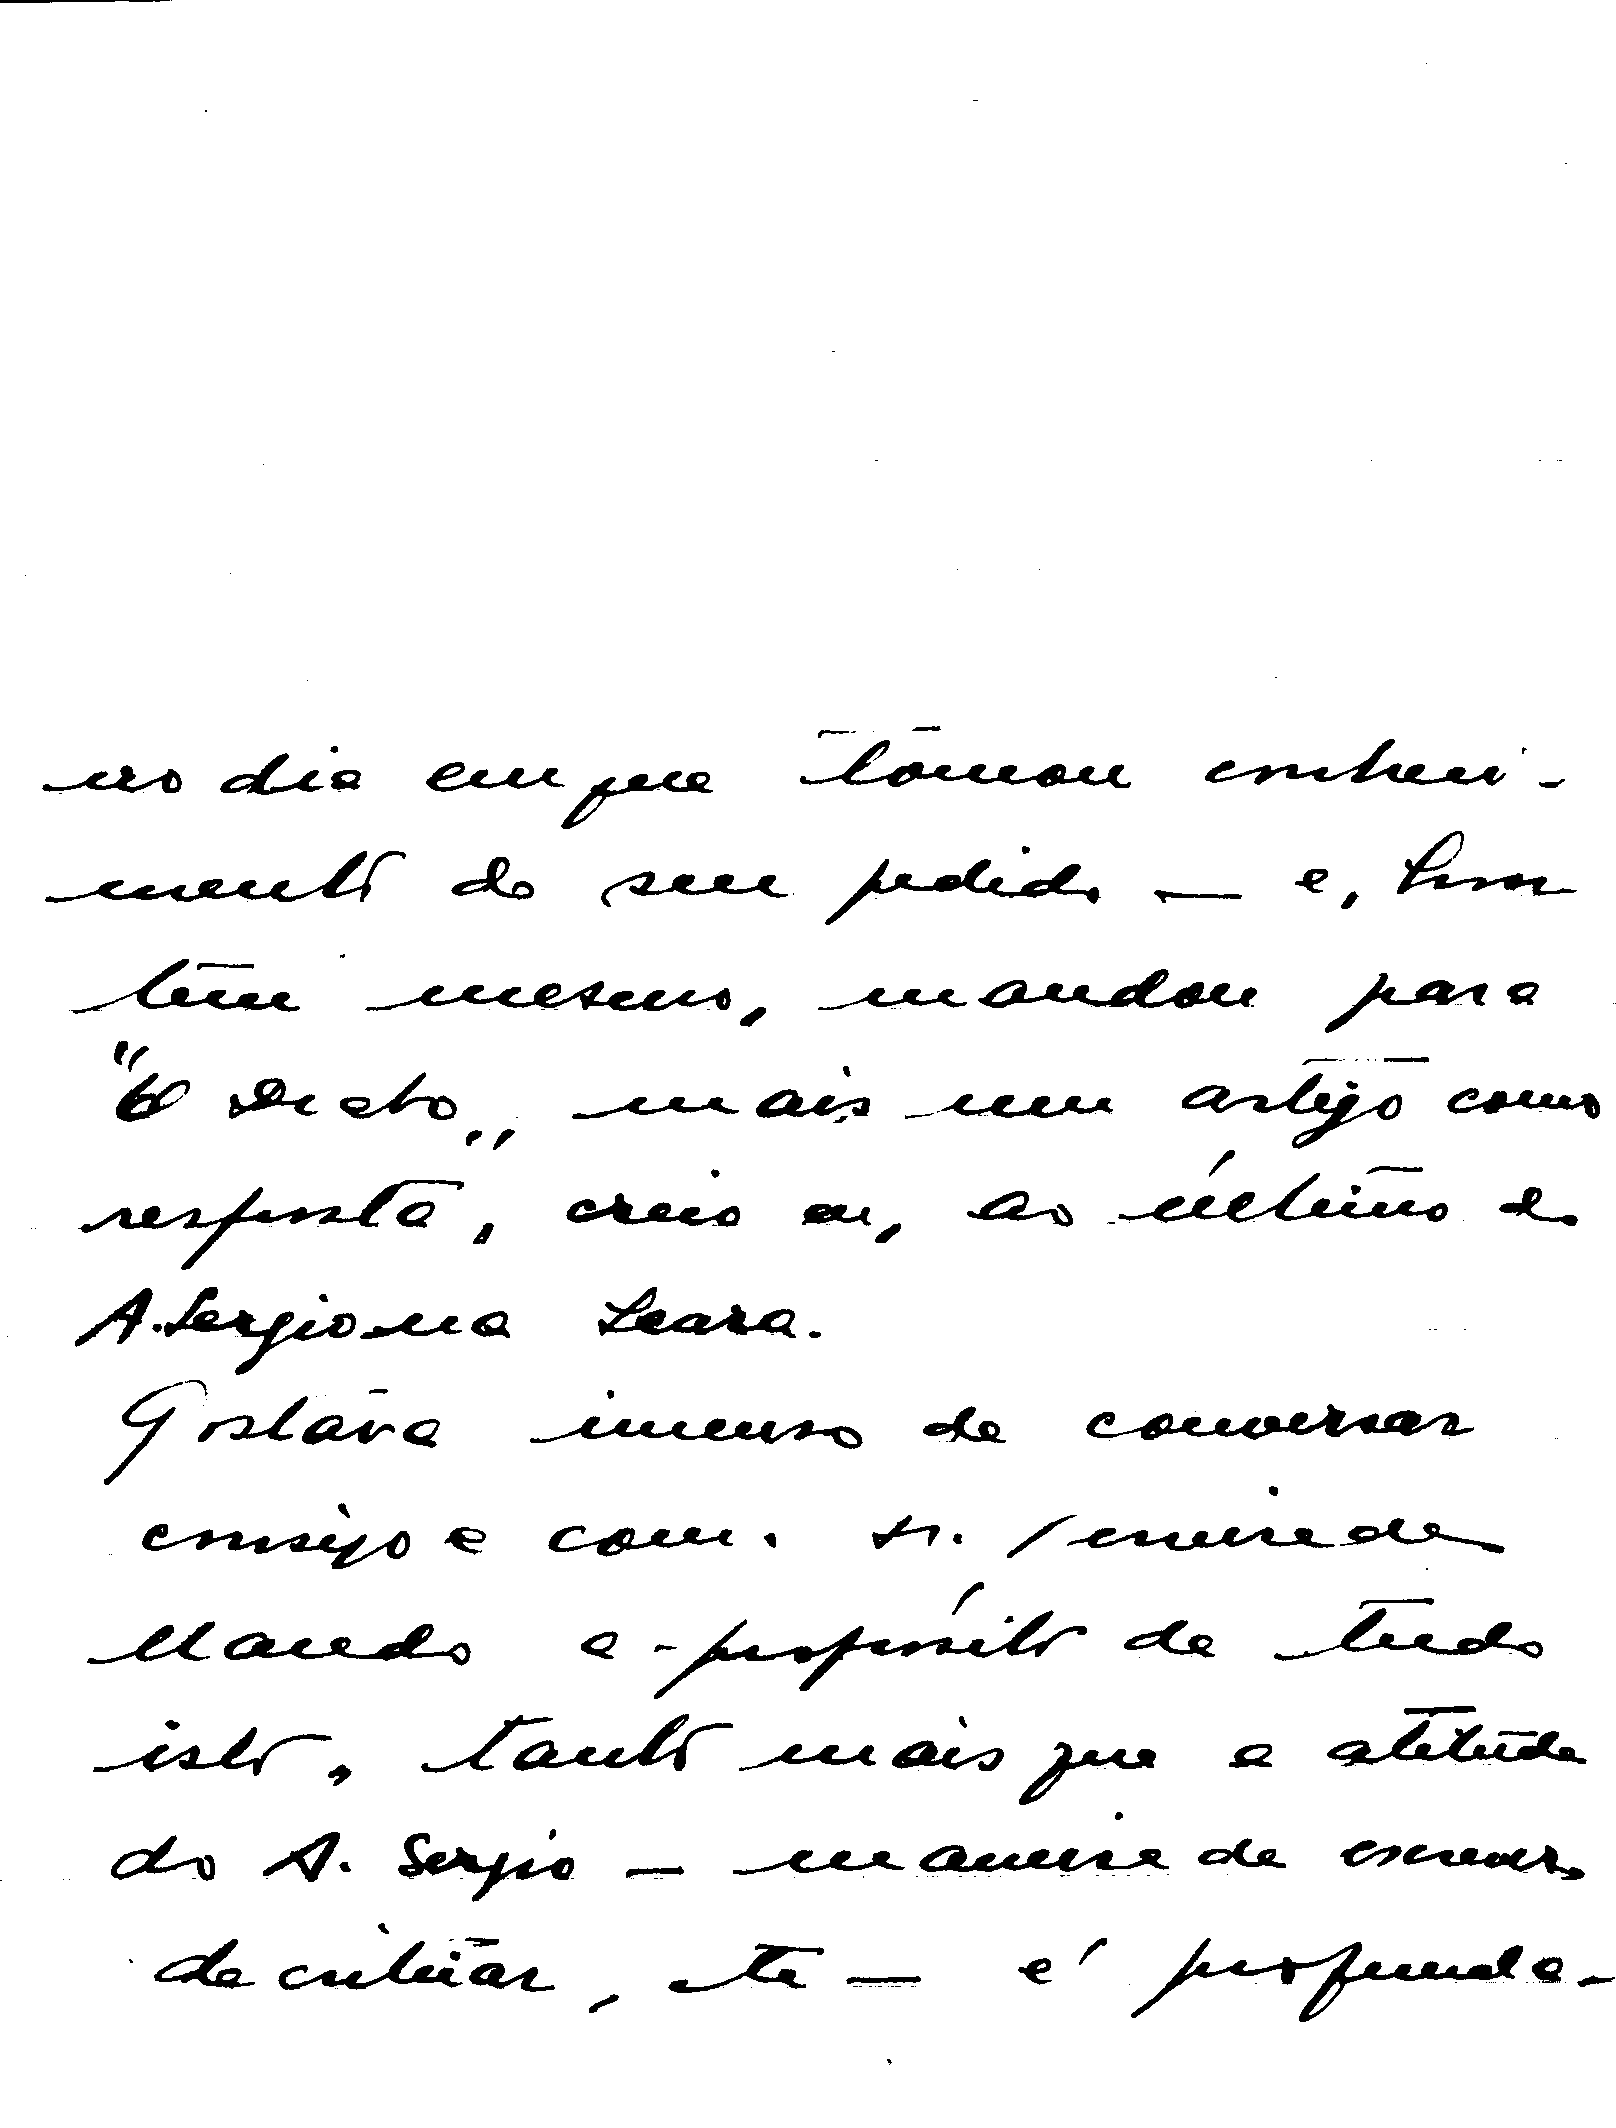 no dia em que tomou conheci-
mento do seu pedido — e, hon
tem mesmo, mandou para
"O Diabo", mais um artigo como
resposta, creio eu, ao último do
A. Sergio na Seara.
Gostava imenso de conversar
consigo e com. sr.
Mando a-propósito de tudo
isto, tanto mais que a atitude
do A. Sergio — maneira de escrever,
de criticar, etc — é profunda-